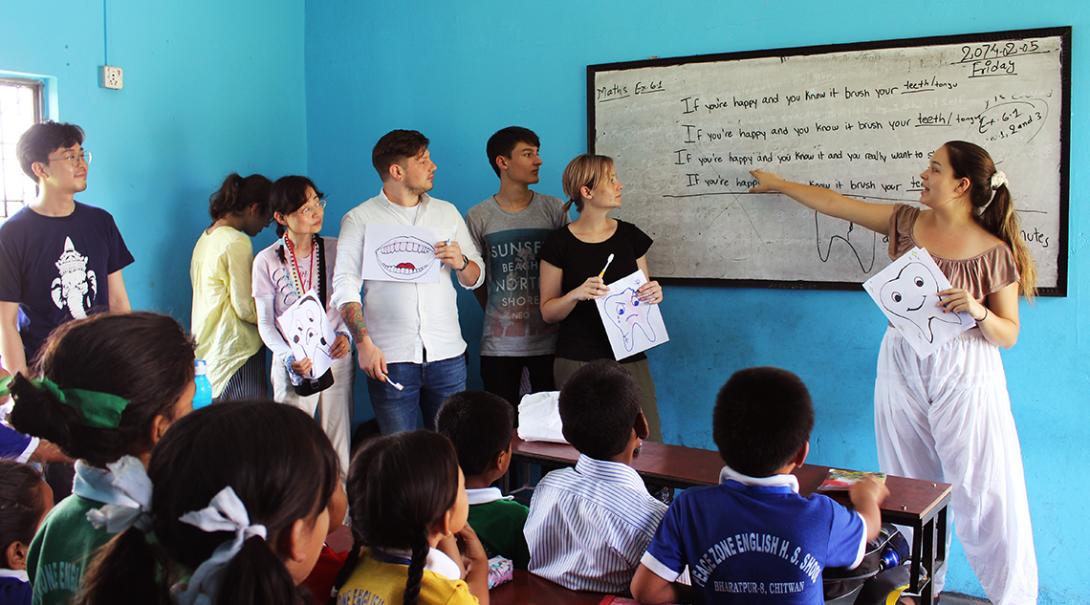 2,074.02.05
Friday
Maths Ex. 6.1
If you're happy and you know it brush your teeth/tongu
If you're happy and you know it brush your teeth/tongu
Ex. 6.2
1, 2 and 3
If you're happy and you know it and you really want to
If you're happy know it brush your
nutes
SUNSET
BEACH
NORTH
SHORE
ZONE ENGLISH H. S. SCHOO
BHARATPUR-8, CHITWAN